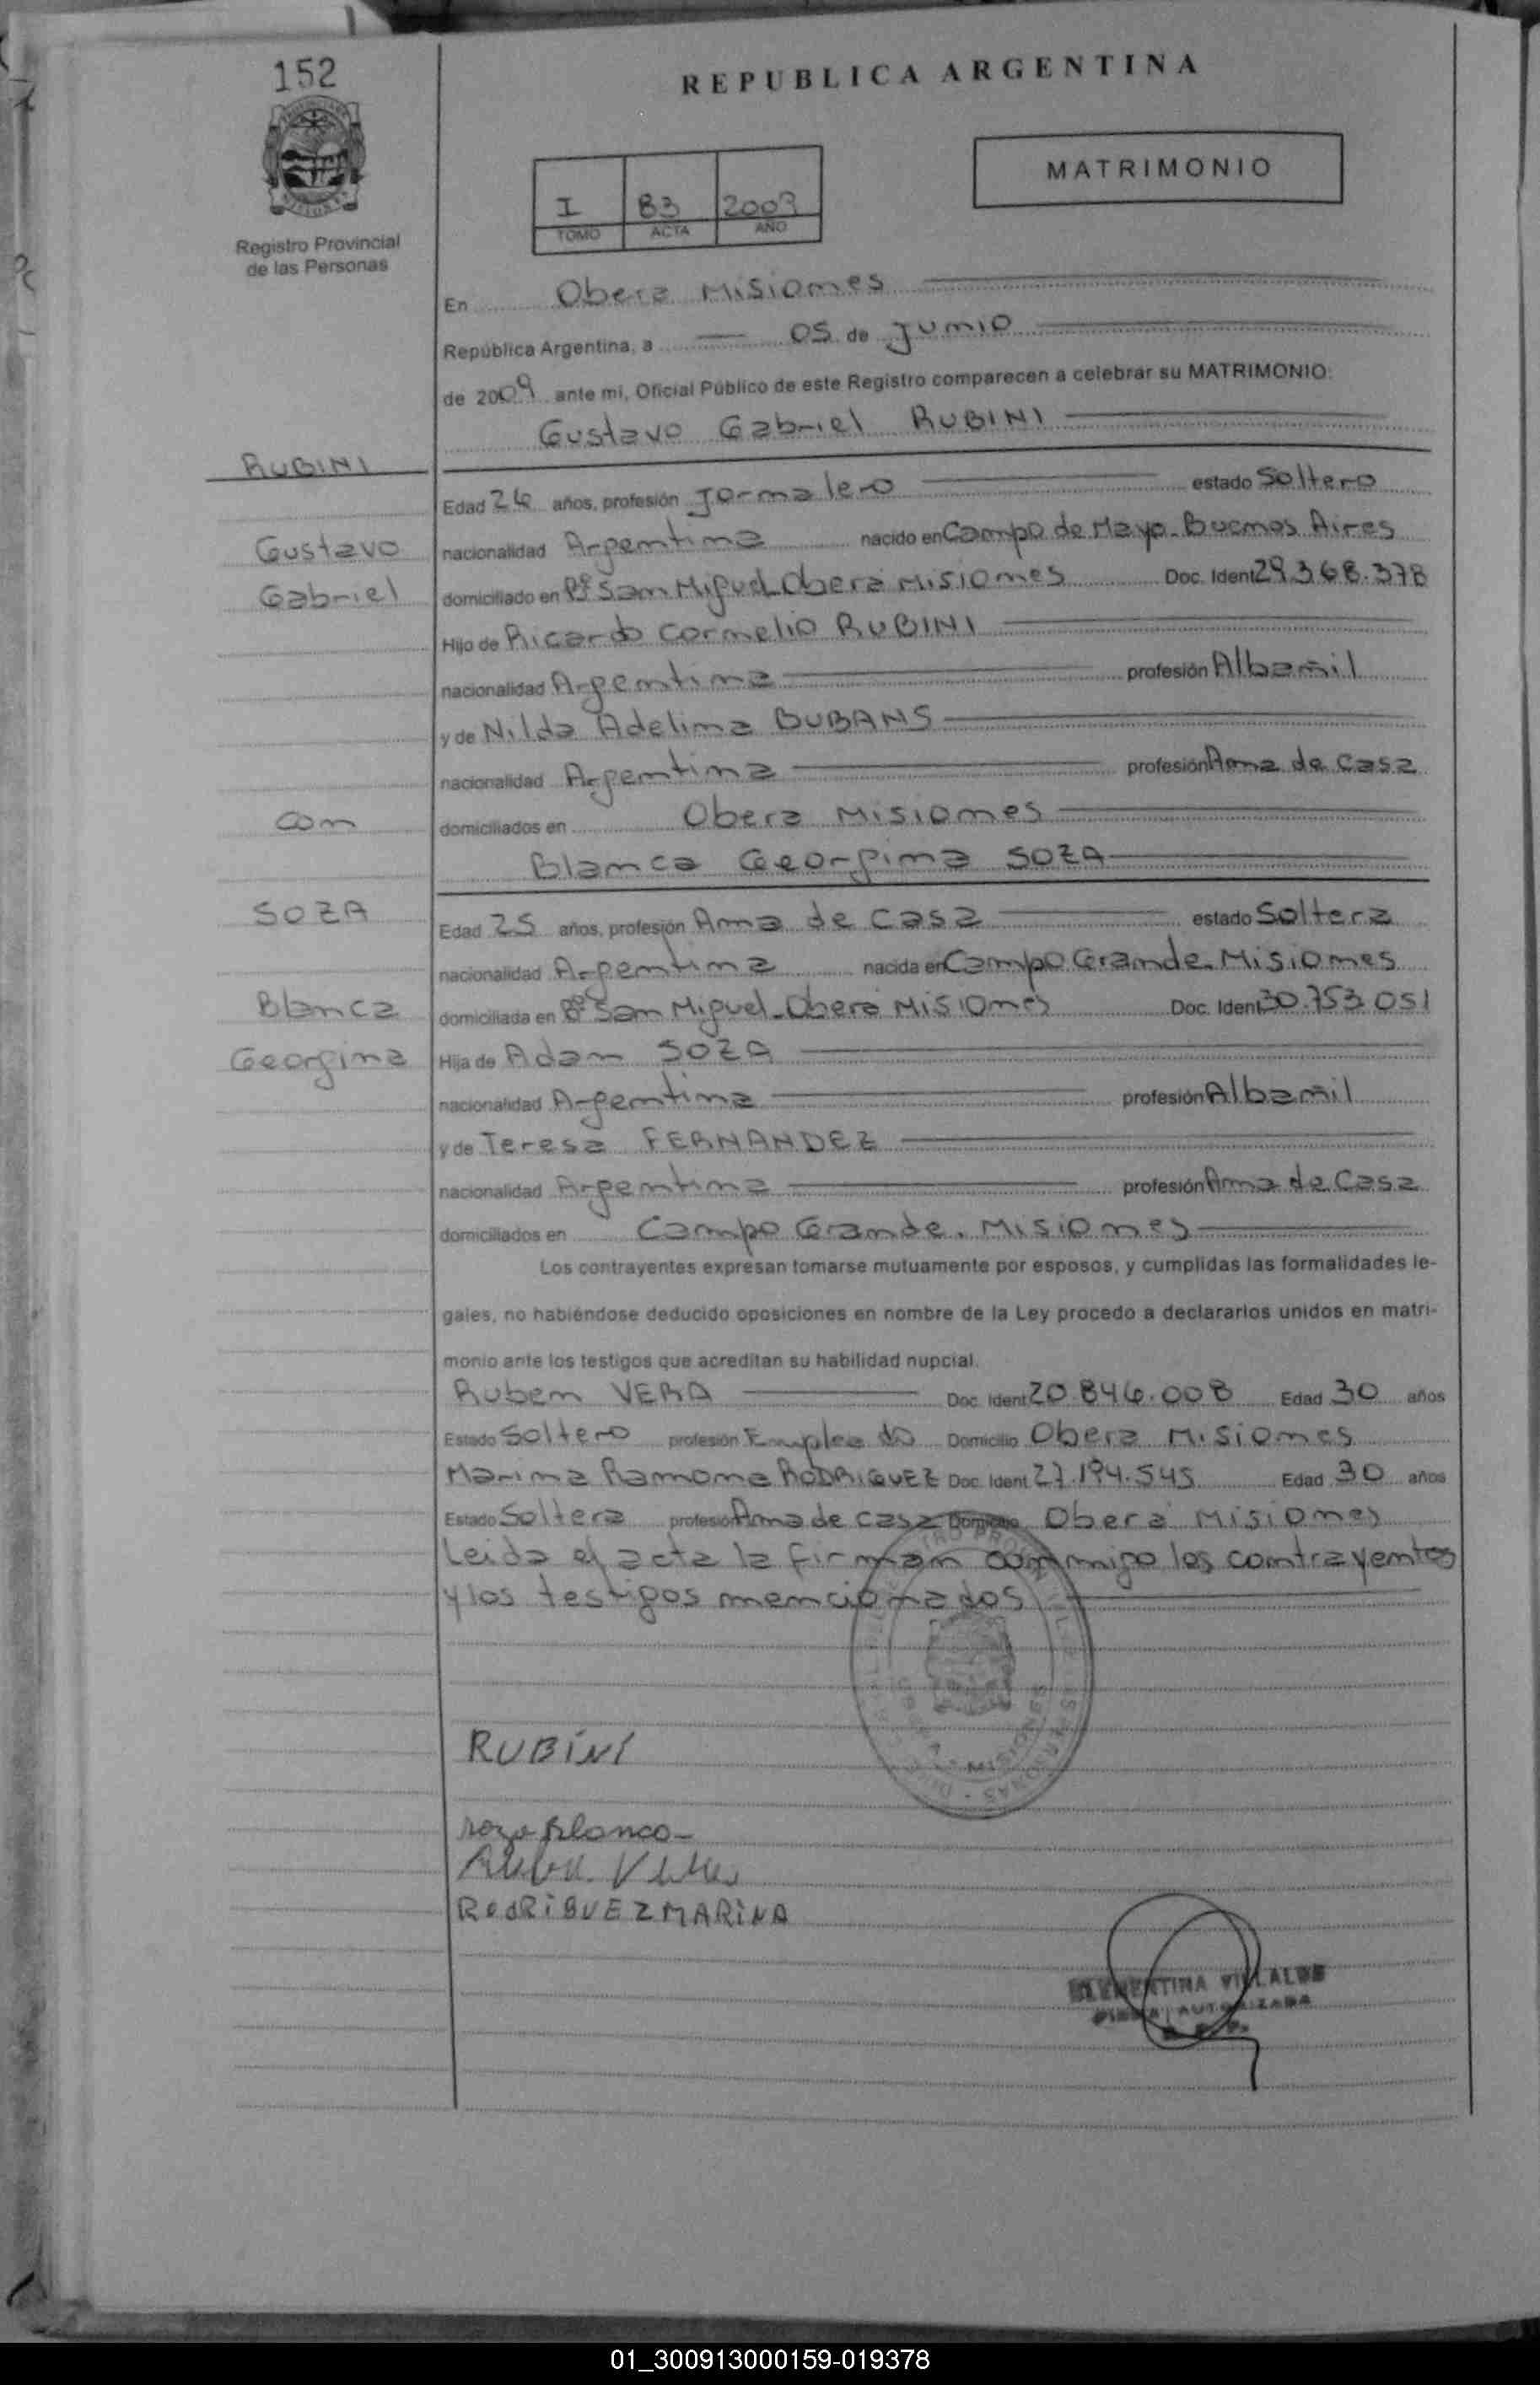 152
REPUBLICA ARGENTINA
MATRIMONIO
I 83 2009
TOMO ACTA AÑO
Registro Provincial
de las Personas
En Obera Misiones
República Argentina, a 05 de Junio
de 2009 ante mi, Oficial Público de este Registro comparecen a celebrar su MATRIMONIO:
Gustavo Gabriel RUBINI
RUBINI
Edad 26 años, profesión Jornalero estado Soltero
Gustavo
nacionalidad Argentina nacido en Campo de Mayo. Buenos Aires
Gabriel
domiciliado en Bº San Miguel Oberá Misiones Doc. Ident 29.368.378
Hijo de Ricardo Cornelio RUBINI
nacionalidad Argentina profesión Albañil
y de Nilda Adelina BUBANS
nacionalidad Argentina profesión Ama de Casa
con
domiciliados en Obera Misiones
Blanca Georgina SOZA
SOZA
Edad 25 años, profesión Ama de Casa estado Soltera
nacionalidad Argentina nacida en Campo Grande. Misiones
Blanca
domiciliada en Bº San Miguel_Oberá Misiones Doc. Ident 30.753.051
Georgina
Hija de Adan SOZA
nacionalidad Argentina profesión Albañil
y de Teresa FERNANDEZ
nacionalidad Argentina profesión Ama de Casa
domiciliados en Campo Grande. Misiones
Los contrayentes expresan tomarse mutuamente por esposos, y cumplidas las formalidades le-
gales, no habiéndose deducido oposiciones en nombre de la Ley procedo a declararlos unidos en matri-
monio ante los testigos que acreditan su habilidad nupcial.
Ruben VERA Doc. Ident 20.846.008 Edad 30 años
Estado Soltero profesión Empleado Domicilio Obera Misiones
Marina Ramona RODRIGUEZ Doc. Ident 27.194.545 Edad 30 años
Estado Soltera profesión Ama de casa Domicilio Oberá Misiones
Leida el acta la firman conmigo los contrayentes
y los testigos mencionados
MISIONES
RUBiNi
soza Blanca-
RodRiGUEZ MARiNA
CLEMENTINA VILLALBA
FIRMA AUTORIZADA
01_300913000159-019378